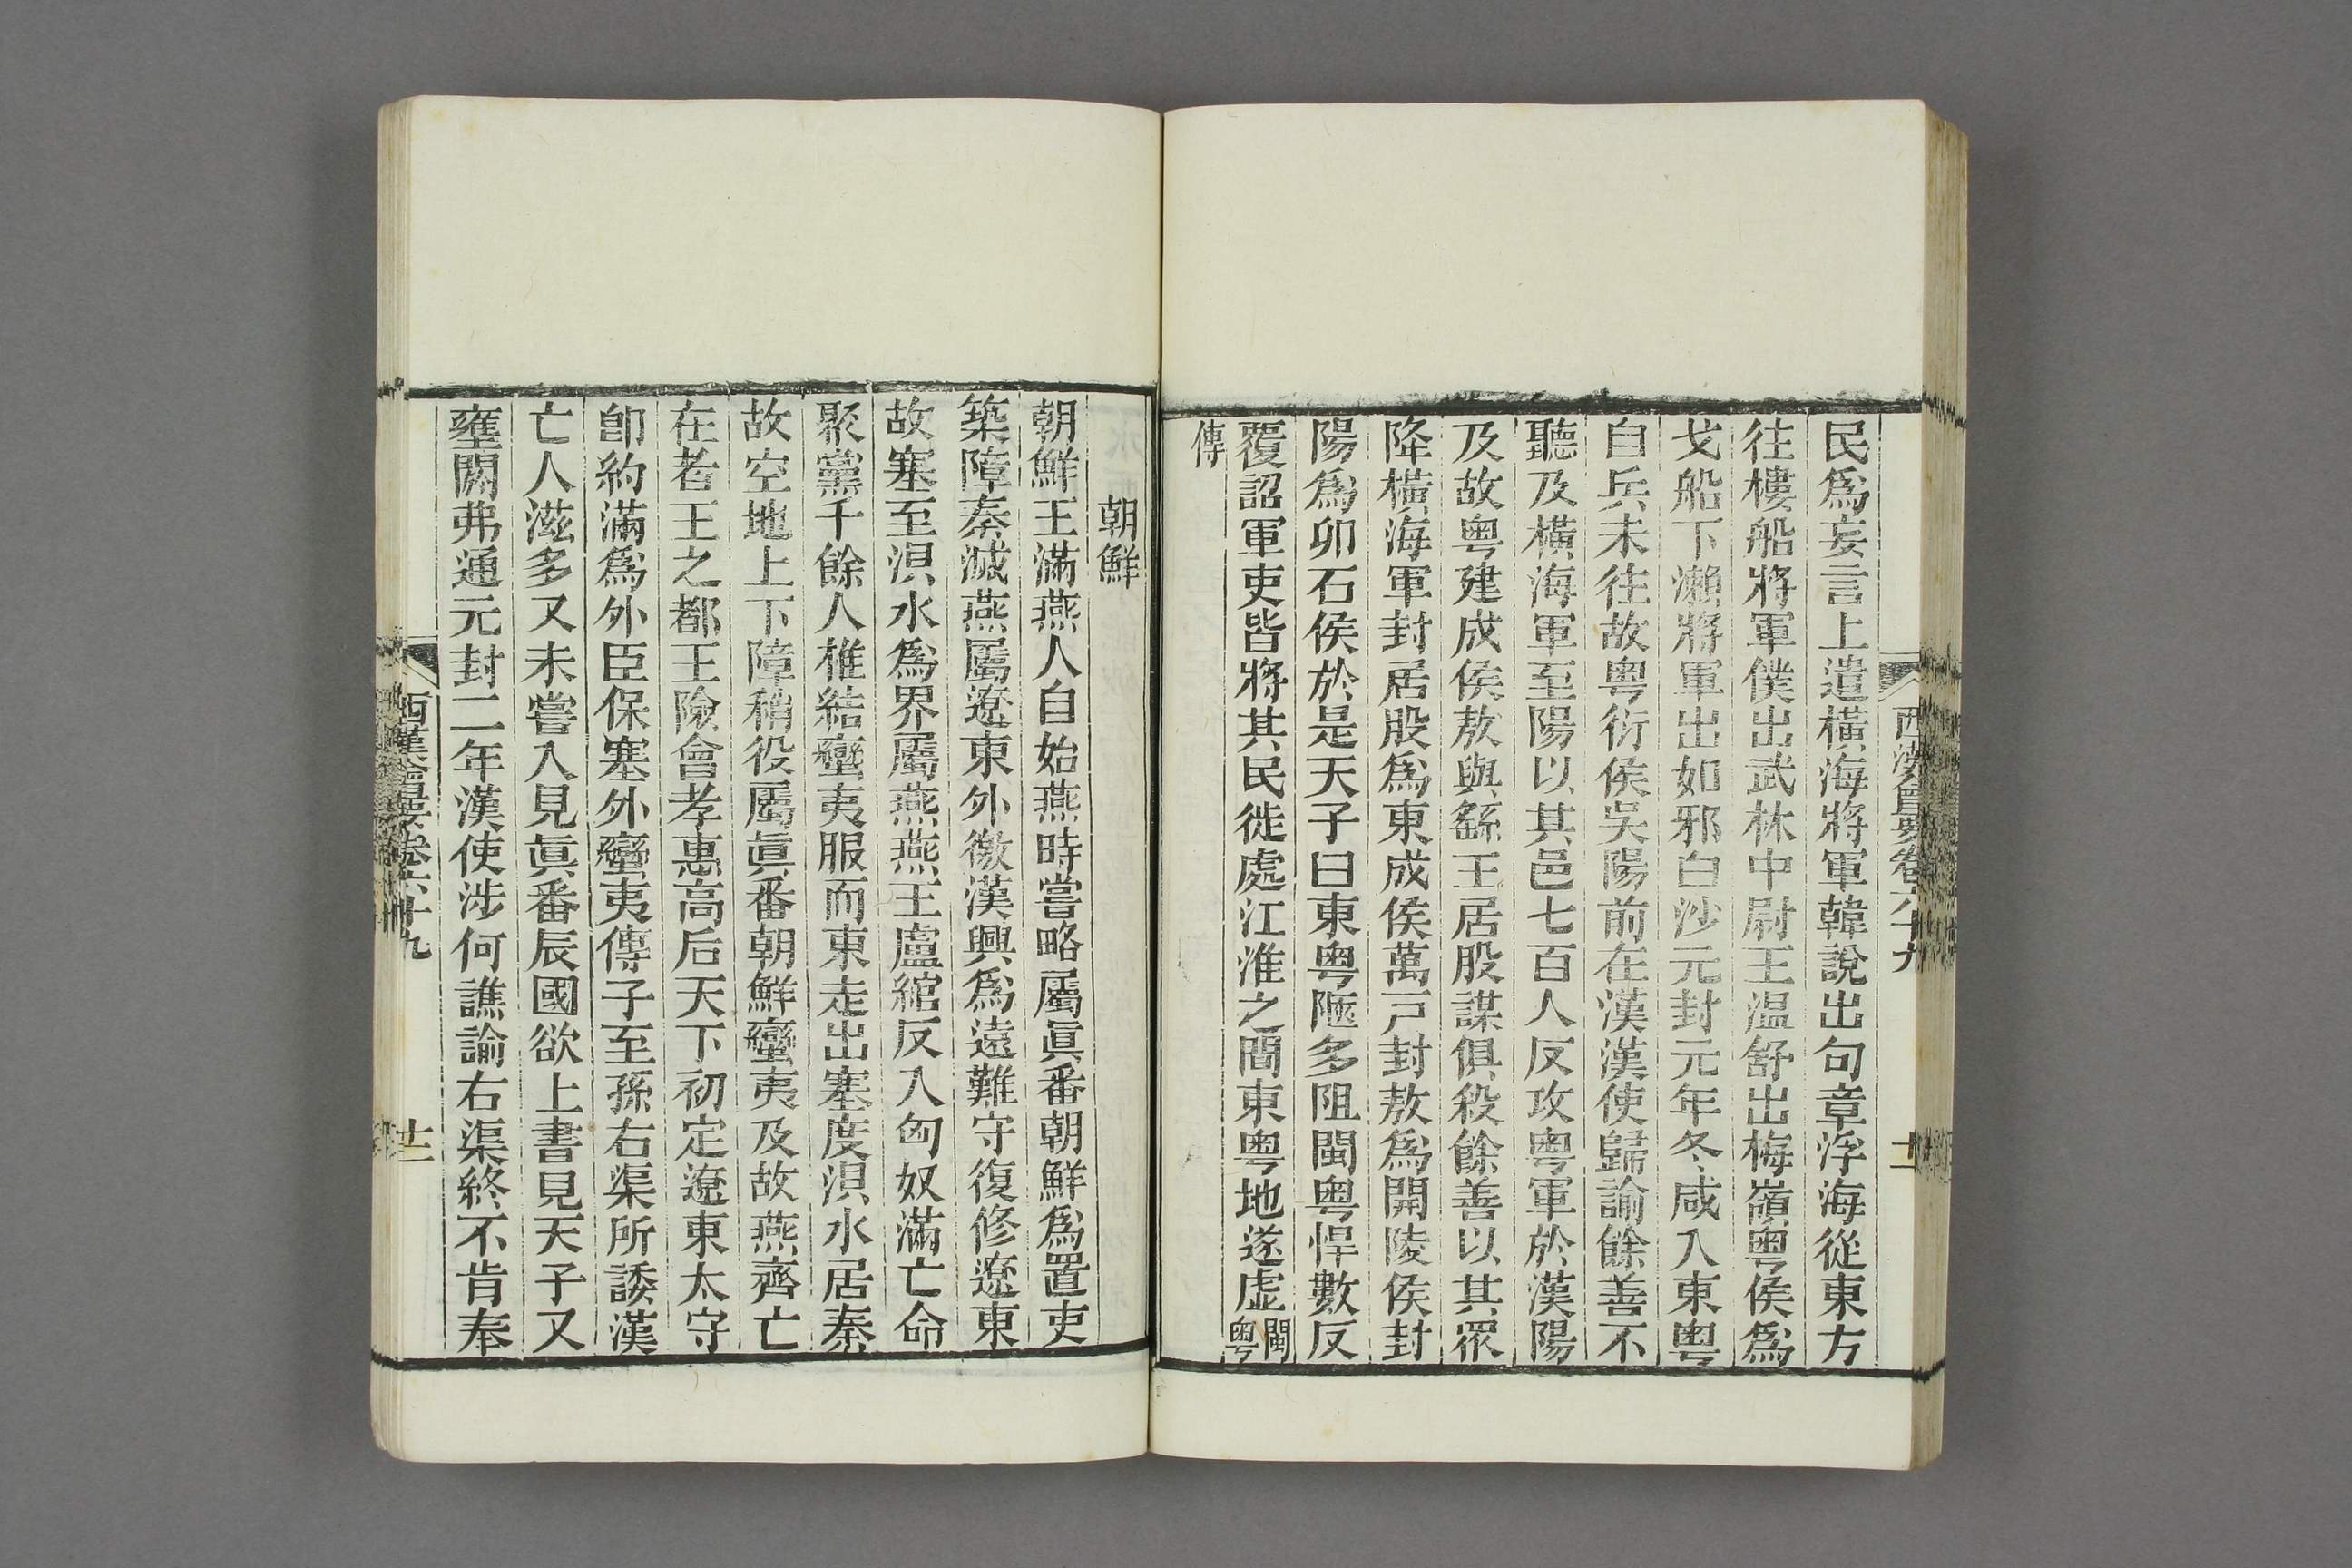 西漢會要卷六十九
十一
民爲妄言上遣橫海將軍韓說出句章浮海從東方
往樓船將軍僕出武林中尉王温舒出梅嶺粤侯爲
戈船下瀨將軍出如邪白沙元封元年冬咸入東粤
自兵未往故粤衍侯吳陽前在漢漢使歸諭餘善不
聽及橫海軍至陽以其邑七百人反攻粤軍於漢陽
及故粤建成侯敖與繇王居股謀俱殺餘善以其衆
降橫海軍封居股爲東成侯萬戸封敖爲開陵侯封
陽爲卯石侯於是天子曰東粤陿多阻閩粤悍數反
覆詔軍吏皆將其民徙處江淮之間東粤地遂虚閩粤
傳
朝鮮
朝鮮王滿燕人自始燕時嘗略屬眞番朝鮮爲置吏
築障秦滅燕屬遼東外徼漢興爲遠難守復修遼東
故塞至浿水爲界屬燕燕王盧綰反入匈奴滿亡命
聚黨千餘人椎結蠻夷服而東走出塞度浿水居秦
故空地上下障稍役屬眞番朝鮮蠻夷及故燕齊亡
在者王之都王險會孝惠高后天下初定遼東太守
卽約滿爲外臣保塞外蠻夷傳子至孫右渠所誘漢
亡人滋多又未嘗入見眞番辰國欲上書見天子又
壅閼弗通元封二年漢使涉何譙諭右渠終不肯奉
西漢會要卷六十九
十二